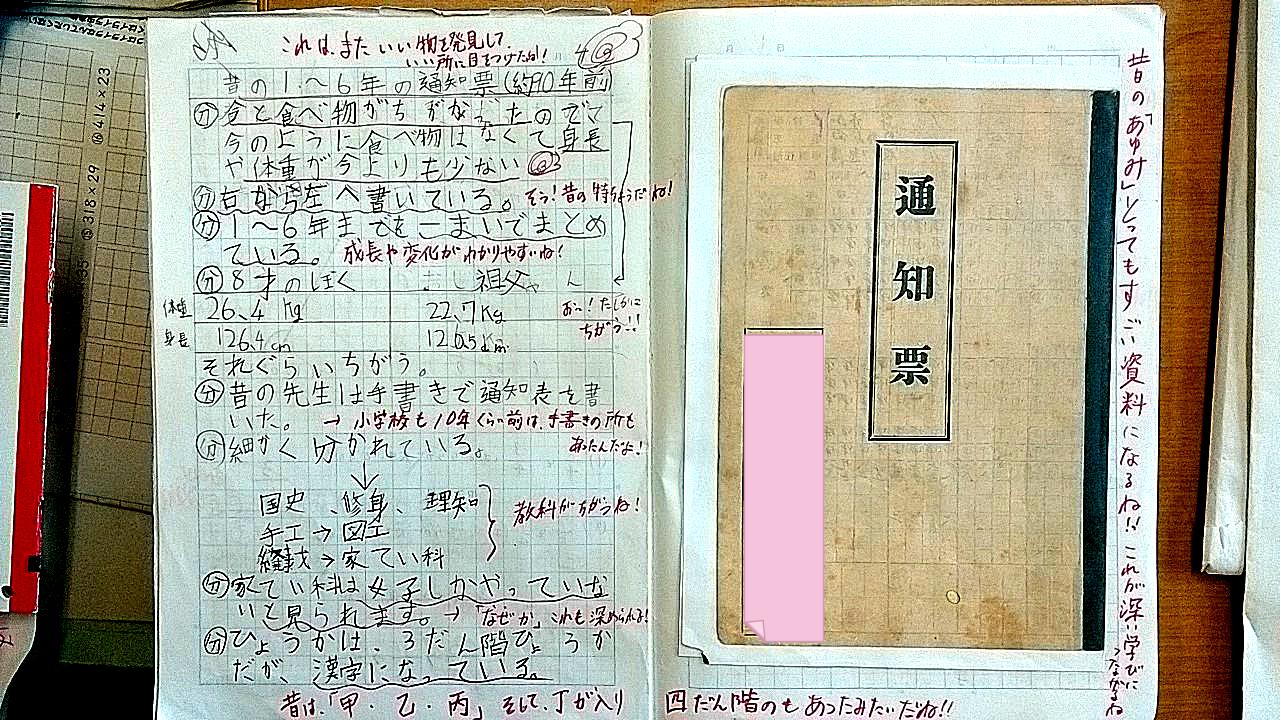 これは、また いい物を発見して、
いい所に目をつけたね!
昔の1～6年の通知票(約90年前
分 今と食べ物がちがなったのでで
今のように食べ物はなくて身長
や体重が今よりも少ない
分 右から左へ書いている。 そう!昔の特ちょうだね!
分 1～6年まてを一まいでまとめ
ている。 成長や変化がわかりやすいね!
分 8才のぼく 祖父
体重 26.4 kg 22.7 kg おー!たしかに
ちがう!!
身長 126.4cm 120.5cm
それぐらいちがう。
分 昔の先生は手書きで通知表を書
いた。 → 小学校も10年くらい前は、手書きの所も
あったんだよ!
分 細かく分かれている。
国史、修身、理知
手工→図工 教科がちがうね!
裁→家てい科
分 家てい科は女子しかやっていな
いと見られます。→「なぜか」これも深められる!
分 ひょうかは、3だん階ひょうか
だが、漢字になっている。
昔は、「甲・乙・丙、そして、丁が入り
四だん階のもあったみたいだね!!
通知票
昔の「あゆみ」とってもすごい資料になるね!! これが深い学びに
つながるね